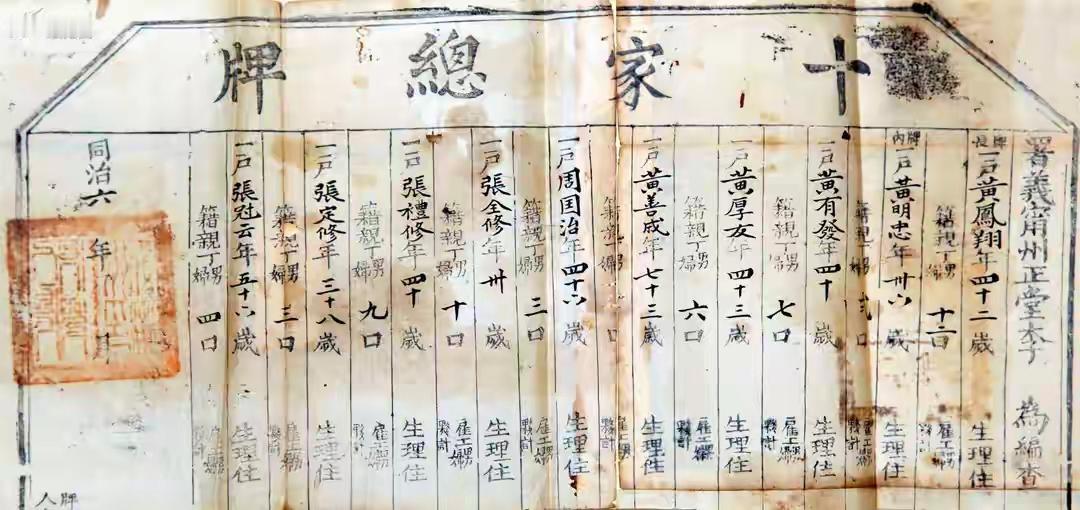 十家總牌
署義甯州正堂本于 為編查
牌長
一戶黃鳳翔年四十二歲 生理住
籍親丁男婦 十二口 雇工婦夥計
牌內
一戶黃明忠年卅六歲 生理住
籍親丁男婦 口 雇工婦夥計
一戶黃有發年四十歲 生理住
籍親丁男婦 七口 雇工婦夥計
一戶黃厚友年四十三歲 生理住
籍親丁男婦 六口 雇工婦夥計
一戶黃善成年七十三歲 生理住
籍親丁男婦 口 雇工婦夥計
一戶周国治年四十六歲 生理住
籍親丁男婦 三口 雇工婦夥計
一戶張全修年卅歲 生理住
籍親丁男婦 十口 雇工婦夥計
一戶張禮修年四十歲 生理住
籍親丁男婦 九口 雇工婦夥計
一戶張定修年三十八歲 生理住
籍親丁男婦 三口 雇工婦夥計
一戶張冠云年五十六歲 生理住
籍親丁男婦 四口 雇工婦夥計
同治六年 月
牌
人